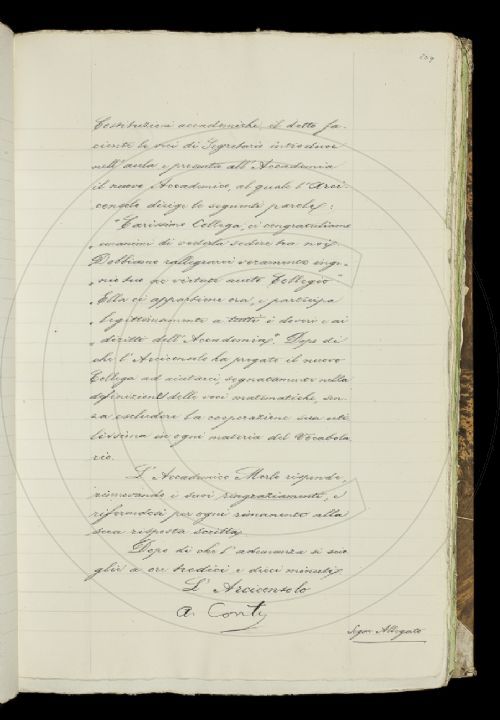 209
Costituzioni accademiche, il detto fa-
ciente le veci di Segretario introduce
nell'aula e presenta all'Accademia
il nuovo Accademico, al quale l'Arci-
consolo dirige le seguenti parole:
"Carissimo Collega, ci congratuliamo
" unanimi di vederla sedere tra noi.
Dobbiamo rallegrarci veramente inge-
nio tuo ac virtute aucto Collegio"
" Ella ci appartiene ora, e partecipa
" legittimamente a tutti i doveri e ai
" diritti dell'Accademia". Dopo di
che l'Arciconsolo ha pregato il nuovo
Collega ad aiutarci, segnatamente nella
definizione delle voci matematiche, sen-
za escludere la cooperazione sua uti-
lissima in ogni materia del Vocabola-
rio.
L'Accademico Merlo risponde,
rinnovando i suoi ringraziamenti, e
riferendosi per ogni rimanente alla
sua risposta scritta.
Dopo di che l'adunanza si scio-
glie a ore tredici e dieci minuti.
L'Arciconsolo
A. Conti
Segue Allegato